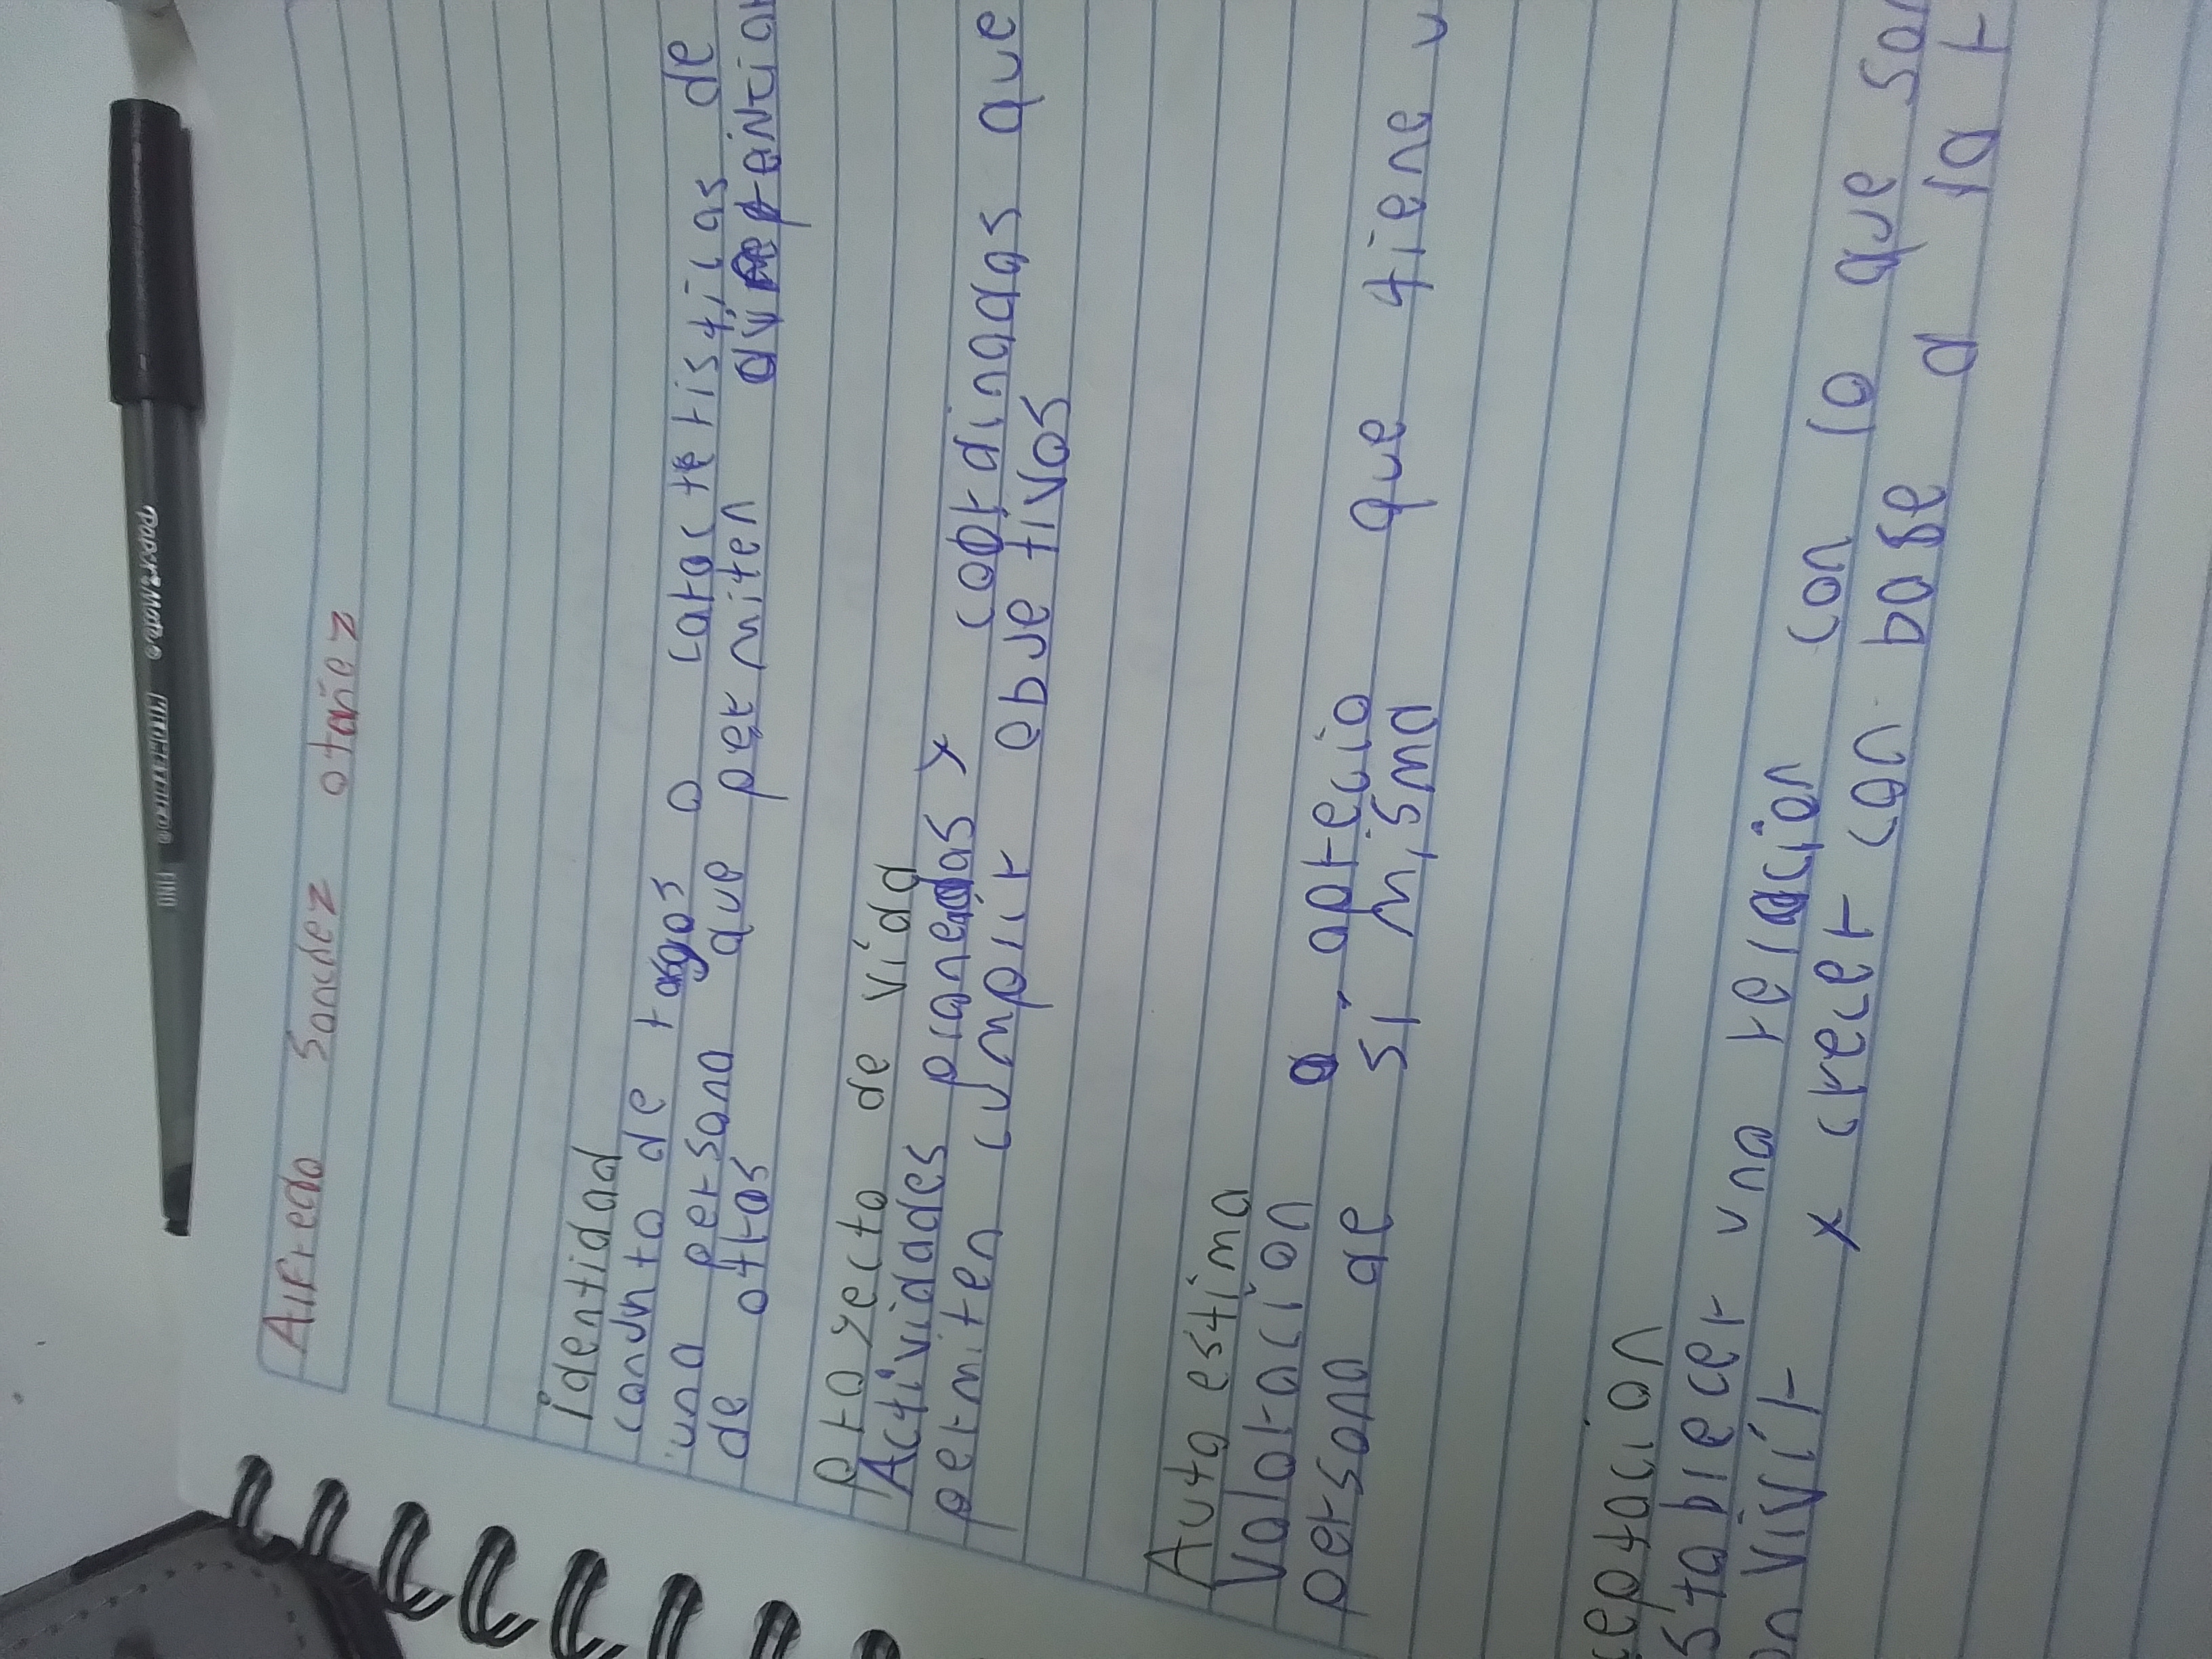 Alfredo Sanchez otañez
identidad
conunto de rasgos o caracteristicas de
una persona que permiten
de otras
proyecto de vida
Actividades planeadas y coordinadas que
permiten cumplir obgetivos
Auto estima
Valoracion o aprecio que tiene u
persona de si misma
ceptacion
stablecer una relacion con lo que so
on vivir y crecer con base a
PaperMate
FINO